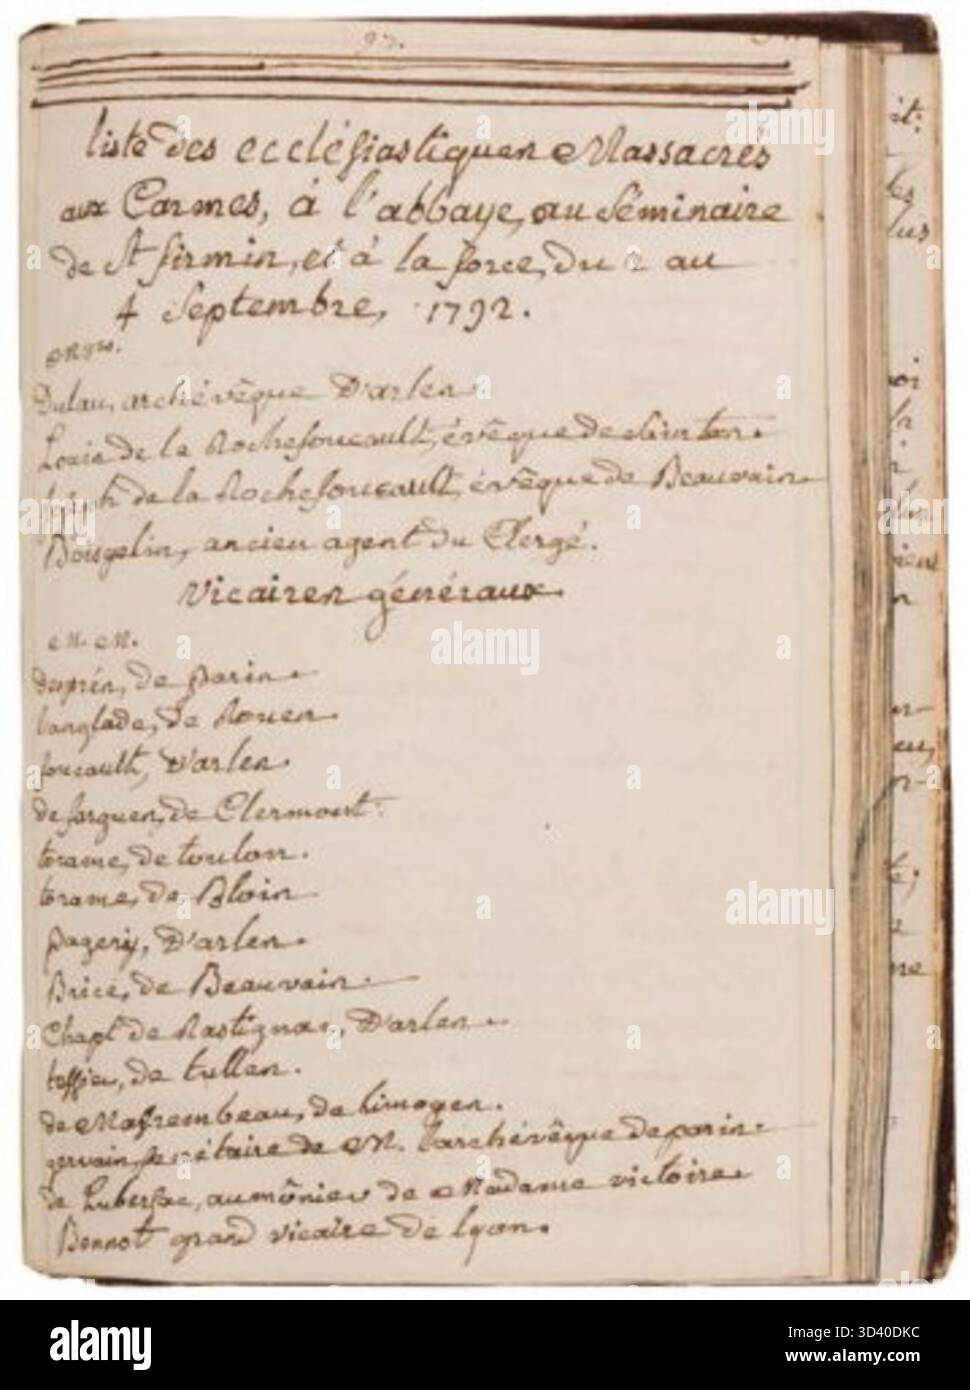 97.
liste des ecclésiastiques Massacrés
aux Carmes, à l'abbaye, au Séminaire
de St firmin, et à la force, du 2 au
4 Septembre, 1792.
Mgrs.
Dulau, archévêque D'arles.
Louis de la Rochefoucault, évêque de Saintes.
Joseph de la Rochefoucault, évêque de Beauvais.
Boisgelin, ancien agent du Clergé.
Vicaires généraux.
M. M.
després, de Paris.
langlade, de Rouen.
foucault, D'arles.
de fargues, de Clermont.
torame, de toulon.
torame, de Blois.
pazery, D'arles.
Brice, de Beauvais.
Chapt de Rastignac, D'arles.
tessier, de tulles.
de Maszembeau, de limoges.
gervais, secrétaire de M. l'archévêque de paris.
de Lubersac, aumônier de Madame victoire.
Bonnot grand vicaire de lyon.
alamy
alamy
Image ID: 3D40DKC
www.alamy.com